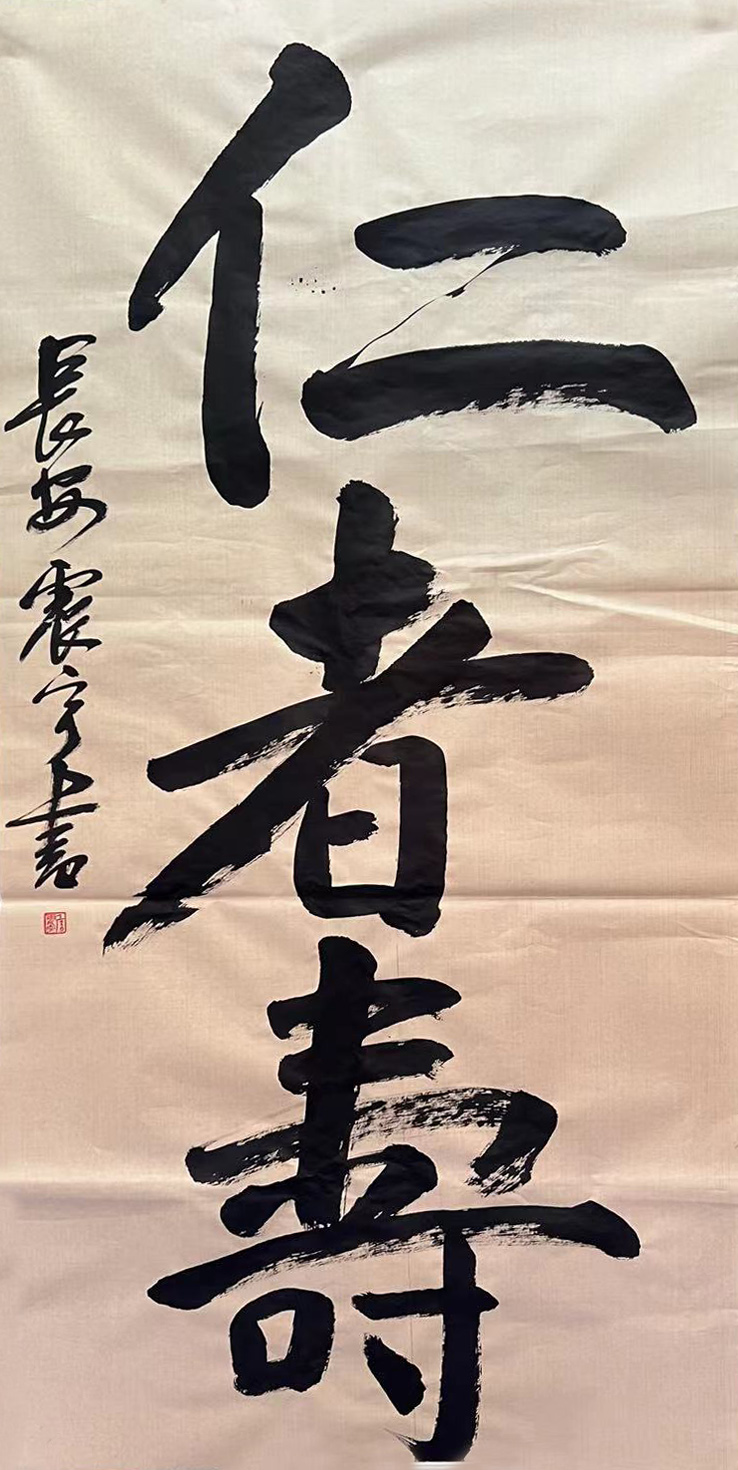 仁者壽
長安震宇上書